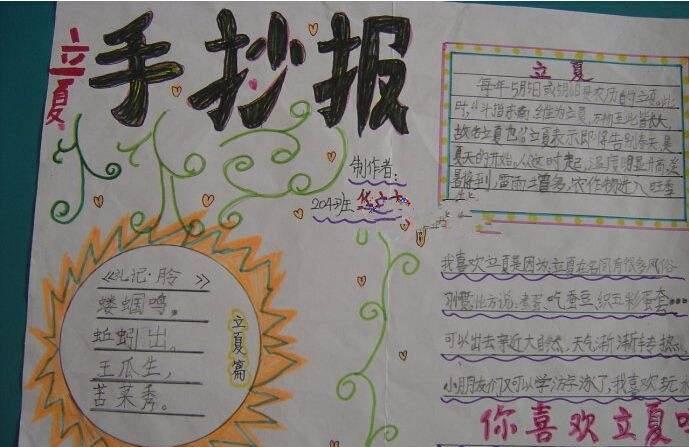 立夏
手抄报
制作者：
204班
《礼记·月令》
蝼蝈鸣，
蚯蚓出。
王瓜生，
苦菜秀。
立夏篇
立夏
每年5月5日或
农历的立夏。此
时,斗指东南,维为立夏,万物至此皆长大,
故名立夏也。立夏表示即将告别春天,是
夏天的开始。从这时起,温度明显升高,炎
暑将到,雷雨增多,农作物进入旺季
我喜欢立夏是因为立夏在各国有很多风俗
习惯。比方说:煮蛋、吃蚕豆、织五彩蛋套……
可以出去亲近大自然,天气渐渐转热
小朋友们又可以学游泳了,我喜欢玩水
你喜欢立夏吗